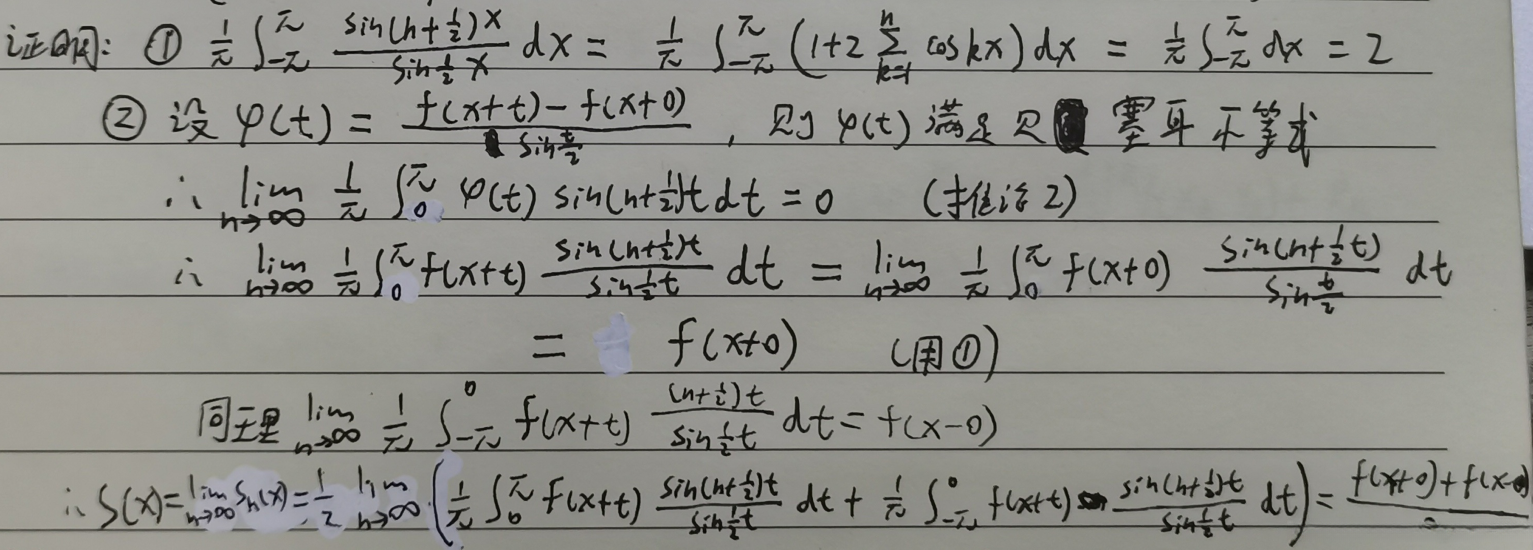 证明: ① 1/π ∫_{-π}^{π} sin(n+1/2)x / sin 1/2 x dx = 1/π ∫_{-π}^{π} (1+2 ∑_{k=1}^{n} cos kx) dx = 1/π ∫_{-π}^{π} dx = 2
② 设 φ(t) = f(x+t) - f(x+0) / sin t/2 , 则 φ(t) 满足贝塞耳不等式
∴ lim_{n→∞} 1/π ∫_0^π φ(t) sin(n+1/2)t dt = 0 (推论2)
∴ lim_{n→∞} 1/π ∫_0^π f(x+t) sin(n+1/2)t / sin 1/2 t dt = lim_{n→∞} 1/π ∫_0^π f(x+0) sin(n+1/2 t) / sin t/2 dt
= f(x+0) (用①)
同理 lim_{n→∞} 1/π ∫_{-π}^0 f(x+t) (n+1/2)t / sin 1/2 t dt = f(x-0)
∴ S(x) = lim_{n→∞} S_n(x) = 1/2 lim_{n→∞} (1/π ∫_0^π f(x+t) sin(n+1/2)t / sin 1/2 t dt + 1/π ∫_{-π}^0 f(x+t) sin(n+1/2)t / sin 1/2 t dt) = f(x+0) + f(x-0) /